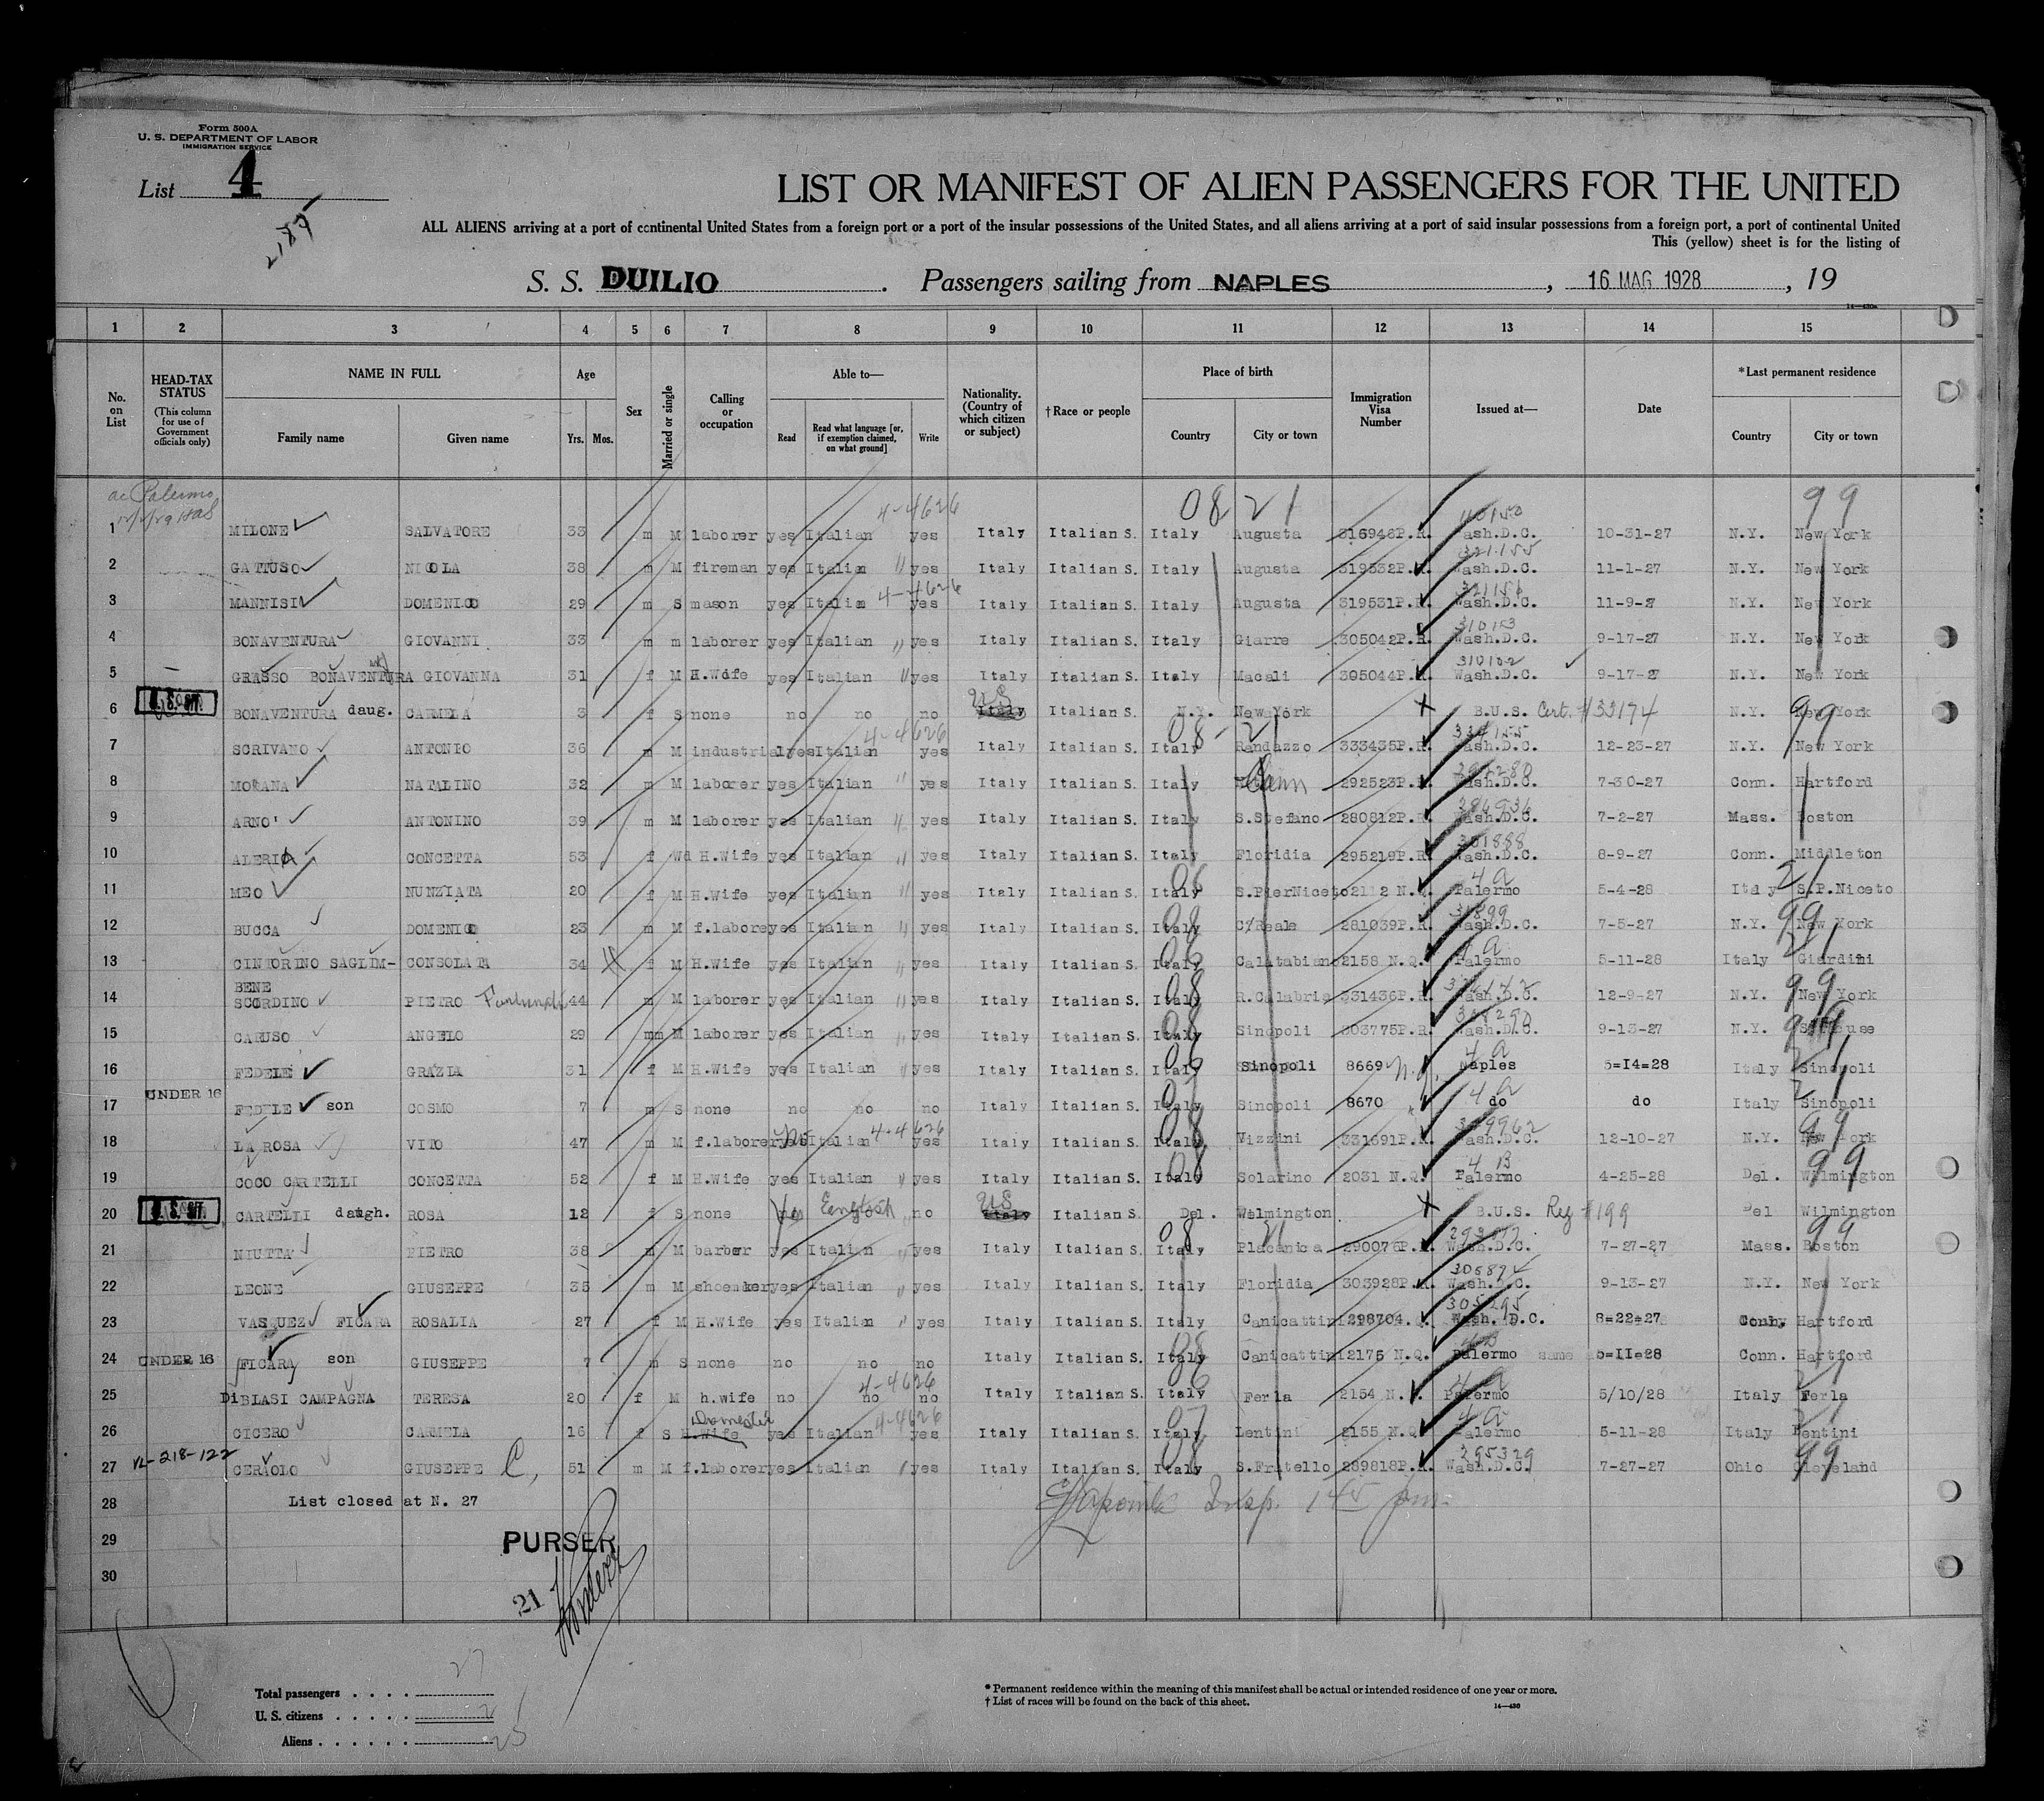 Form 500A
U. S. DEPARTMENT OF LABOR
IMMIGRATION SERVICE
List 4
2187
LIST OR MANIFEST OF ALIEN PASSENGERS FOR THE UNITED
ALL ALIENS arriving at a port of continental United States from a foreign port or a port of the insular possessions of the United States, and all aliens arriving at a port of said insular possessions from a foreign port, a port of continental United
This (yellow) sheet is for the listing of
S. S. DUILIO . Passengers sailing from NAPLES , 16 MAG 1928 , 19
1 2 3 4 5 6 7 8 9 10 11 12 13 14 15
No. on List
HEAD-TAX STATUS (This column for use of Government officials only)
NAME IN FULL Family name Given name
Age Yrs. Mos.
Sex
Married or single
Calling or occupation
Able to— Read Read what language [or, if exemption claimed, on what ground] Write
Nationality. (Country of which citizen or subject)
† Race or people
Place of birth Country City or town
Immigration Visa Number
Issued at—
Date
*Last permanent residence Country City or town
Palermo
4-4626 08 21 99
1 MILONE SALVATORE 33 m M laborer yes Italian yes Italy Italian S. Italy Augusta 316948P.R. Wash.D.C. 10-31-27 N.Y. New York
321155
2 GATTUSO NICOLA 38 m M fireman yes Italian " yes Italy Italian S. Italy Augusta 319532P.R. Wash.D.C. 11-1-27 N.Y. New York
4-4626 321156
3 MANNISI DOMENICO 29 m S mason yes Italian yes Italy Italian S. Italy Augusta 319531P.R. Wash.D.C. 11-9-27 N.Y. New York
310103
4 BONAVENTURA GIOVANNI 33 m m laborer yes Italian " yes Italy Italian S. Italy Giarre 305042P.R. Wash.D.C. 9-17-27 N.Y. New York
310102
5 GRASSO BONAVENTURA GIOVANNA 31 f M H.Wife yes Italian " yes Italy Italian S. Italy Macali 305044P.R. Wash.D.C. 9-17-27 N.Y. New York
US
6 BONAVENTURA daug. CARMELA 3 f S none no no no Italy Italian S. N.Y. New York B.U.S. Cert. #33174 N.Y. New York
4-4626 08-21 99
7 SCRIVANO ANTONIO 36 m M industrial yes Italian yes Italy Italian S. Italy Randazzo 333435P.R. Wash.D.C. 12-23-27 N.Y. New York
8 MORANA NATALINO 32 m M laborer yes Italian " yes Italy Italian S. Italy 292523P.R. Wash.D.C. 7-30-27 Conn. Hartford
9 ARNO' ANTONINO 39 m M laborer yes Italian " yes Italy Italian S. Italy S.Stefano 280812P.R. Wash.D.C. 7-2-27 Mass. Boston
301888
10 ALERIA CONCETTA 53 f Wd H.Wife yes Italian " yes Italy Italian S. Italy Floridia 295219P.R. Wash.D.C. 8-9-27 Conn. Middleton
06 4 a 21
11 MEO NUNZIATA 20 f M H.Wife yes Italian " yes Italy Italian S. Italy S.PierNiceto 2112 N.Q. Palermo 5-4-28 Italy S.P.Niceto
08 99
12 BUCCA DOMENICO 23 m M f.labore yes Italian " yes Italy Italian S. Italy C/Reale 281039P.R. Wash.D.C. 7-5-27 N.Y. New York
4 a 21
13 CINTORINO SAGLIM- CONSOLATA 34 f M H.Wife yes Italian " yes Italy Italian S. Italy Calatabiano 2158 N.Q. Palermo 5-11-28 Italy Giardini
BENE
08 99
14 SCORDINO PIETRO 44 m M laborer yes Italian " yes Italy Italian S. Italy R.Calabria 331436P.R. Wash.D.C. 12-9-27 N.Y. New York
08 99
15 CARUSO ANGELO 29 mm M laborer yes Italian " yes Italy Italian S. Italy Sinopoli 303775P.R. Wash.D.C. 9-13-27 N.Y.
06 4 a 21
16 FEDELE GRAZIA 31 f M H.Wife yes Italian " yes Italy Italian S. Italy Sinopoli 8669 n.q. Naples 5=14=28 Italy Sinopoli
UNDER 16 07 4 a 21
17 FEDELE son COSMO 7 m S none no no no Italy Italian S. Italy Sinopoli 8670 do do Italy Sinopoli
4-4626 08 339962 99
18 LA ROSA VITO 47 m M f.laborer yes Italian yes Italy Italian S. Italy Vizzini 331691P.R. Wash.D.C. 12-10-27 N.Y. New York
4 B 99
19 COCO CARTELLI CONCETTA 52 f M H.Wife yes Italian " yes Italy Italian S. Italy Solarino 2031 N.Q. Palermo 4-25-28 Del. Wilmington
US
20 CARTELLI daugh. ROSA 12 f S none yes English no Italy Italian S. Del. Wilmington B.U.S. Reg #199 Del Wilmington
08 21 99
21 NIUTTA PIETRO 38 m M barber yes Italian " yes Italy Italian S. Italy Placanica 290076P.R. Wash.D.C. 7-27-27 Mass. Boston
305874
22 LEONE GIUSEPPE 35 m M shoemker yes Italian " yes Italy Italian S. Italy Floridia 303928P.R. Wash.D.C. 9-13-27 N.Y. New York
305295
23 VASQUEZ FICARA ROSALIA 27 f M H.Wife yes Italian " yes Italy Italian S. Italy Canicattini 298704.Q. Wash. D.C. 8=22=27 Conn. Hartford
UNDER 16
24 FICARA son GIUSEPPE 7 m S none no no no Italy Italian S. Italy Canicattini 2175 N.Q. Palermo same 5=II=28 Conn. Hartford
4-4626 4 a 21
25 DiBLASI CAMPAGNA TERESA 20 f M h.wife no no no Italy Italian S. Italy Ferla 2154 N.Q. Palermo 5/10/28 Italy Ferla
Domestic 4-4626 07 4 a 21
26 CICERO CARMELA 16 f S H.Wife yes Italian yes Italy Italian S. Italy Lentini 2155 N.Q. Palermo 5-11-28 Italy Lentini
VL-218-122 08 295329 99
27 CERAOLO GIUSEPPE C, 51 m M f.laborer yes Italian " yes Italy Italian S. Italy S.Fratello 289818P.R. Wash.D.C. 7-27-27 Ohio Cleveland
28 List closed at N. 27 Insp. 145 pm.
29
PURSER
30
21
Total passengers . . . . 27
U. S. citizens . . . . . 2
Aliens . . . . . . 25
* Permanent residence within the meaning of this manifest shall be actual or intended residence of one year or more.
† List of races will be found on the back of this sheet.
14—430